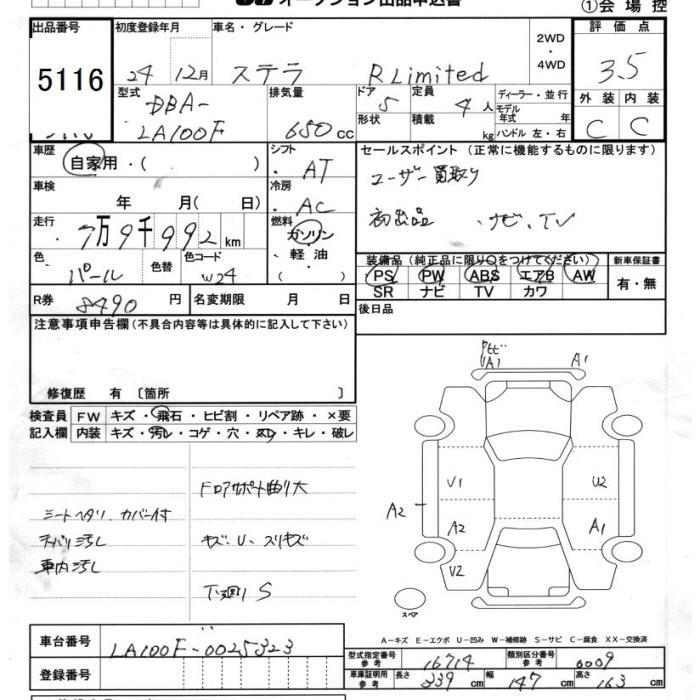 オークション出品申込書
①会場控
出品番号 初度登録年月 車名・グレード 2WD ・ 4WD 評価点
5116 24 12月 ステラ R Limited 3.5
型式 排気量 ドア 定員 ディーラー・並行 外装 内装
DBA- LA100F 650 cc 5 4人 モデル年式 年 C C
形状 積載 kg ハンドル 左・右
車歴 シフト セールスポイント (正常に機能するものに限ります)
自家用・( ) AT ユーザー買取り
車検 冷房
年 月( 日) AC 初出品 ・ナビ、TV
走行 燃料
7万9千992km ガソリン・軽油・( )
装備品 (純正品に限り○をつけてください) 新車保証書
色 色替 色コード PS PW ABS エアB AW 有・無
パール W24 SR ナビ TV カワ
R券 8490 円 名変期限 月 日 後日品
注意事項申告欄 (不具合内容等は具体的に記入して下さい)
修復歴 有 〔箇所 〕
検査員 FW キズ・飛石・ヒビ割・リペア跡・×要
記入欄 内装 キズ・汚レ・コゲ・穴・スレ・キレ・破レ
A1 A1
ドアサポート曲り大
V1 U2
シートヘタリ、カバー付
A2 A2 A1
キズ、U、スリキズ
車内汚し
V2
下廻りS
スペア
A-キズ E-エクボ U-凹み W-補修跡 S-サビ C-腐食 XX-交換済
車台番号 LA100F-0025323
型式指定番号 参考 16714 類別区分番号 参考 0009
登録番号
車庫証明用 参考 長さ 339 cm 幅 147 cm 高さ 163 cm